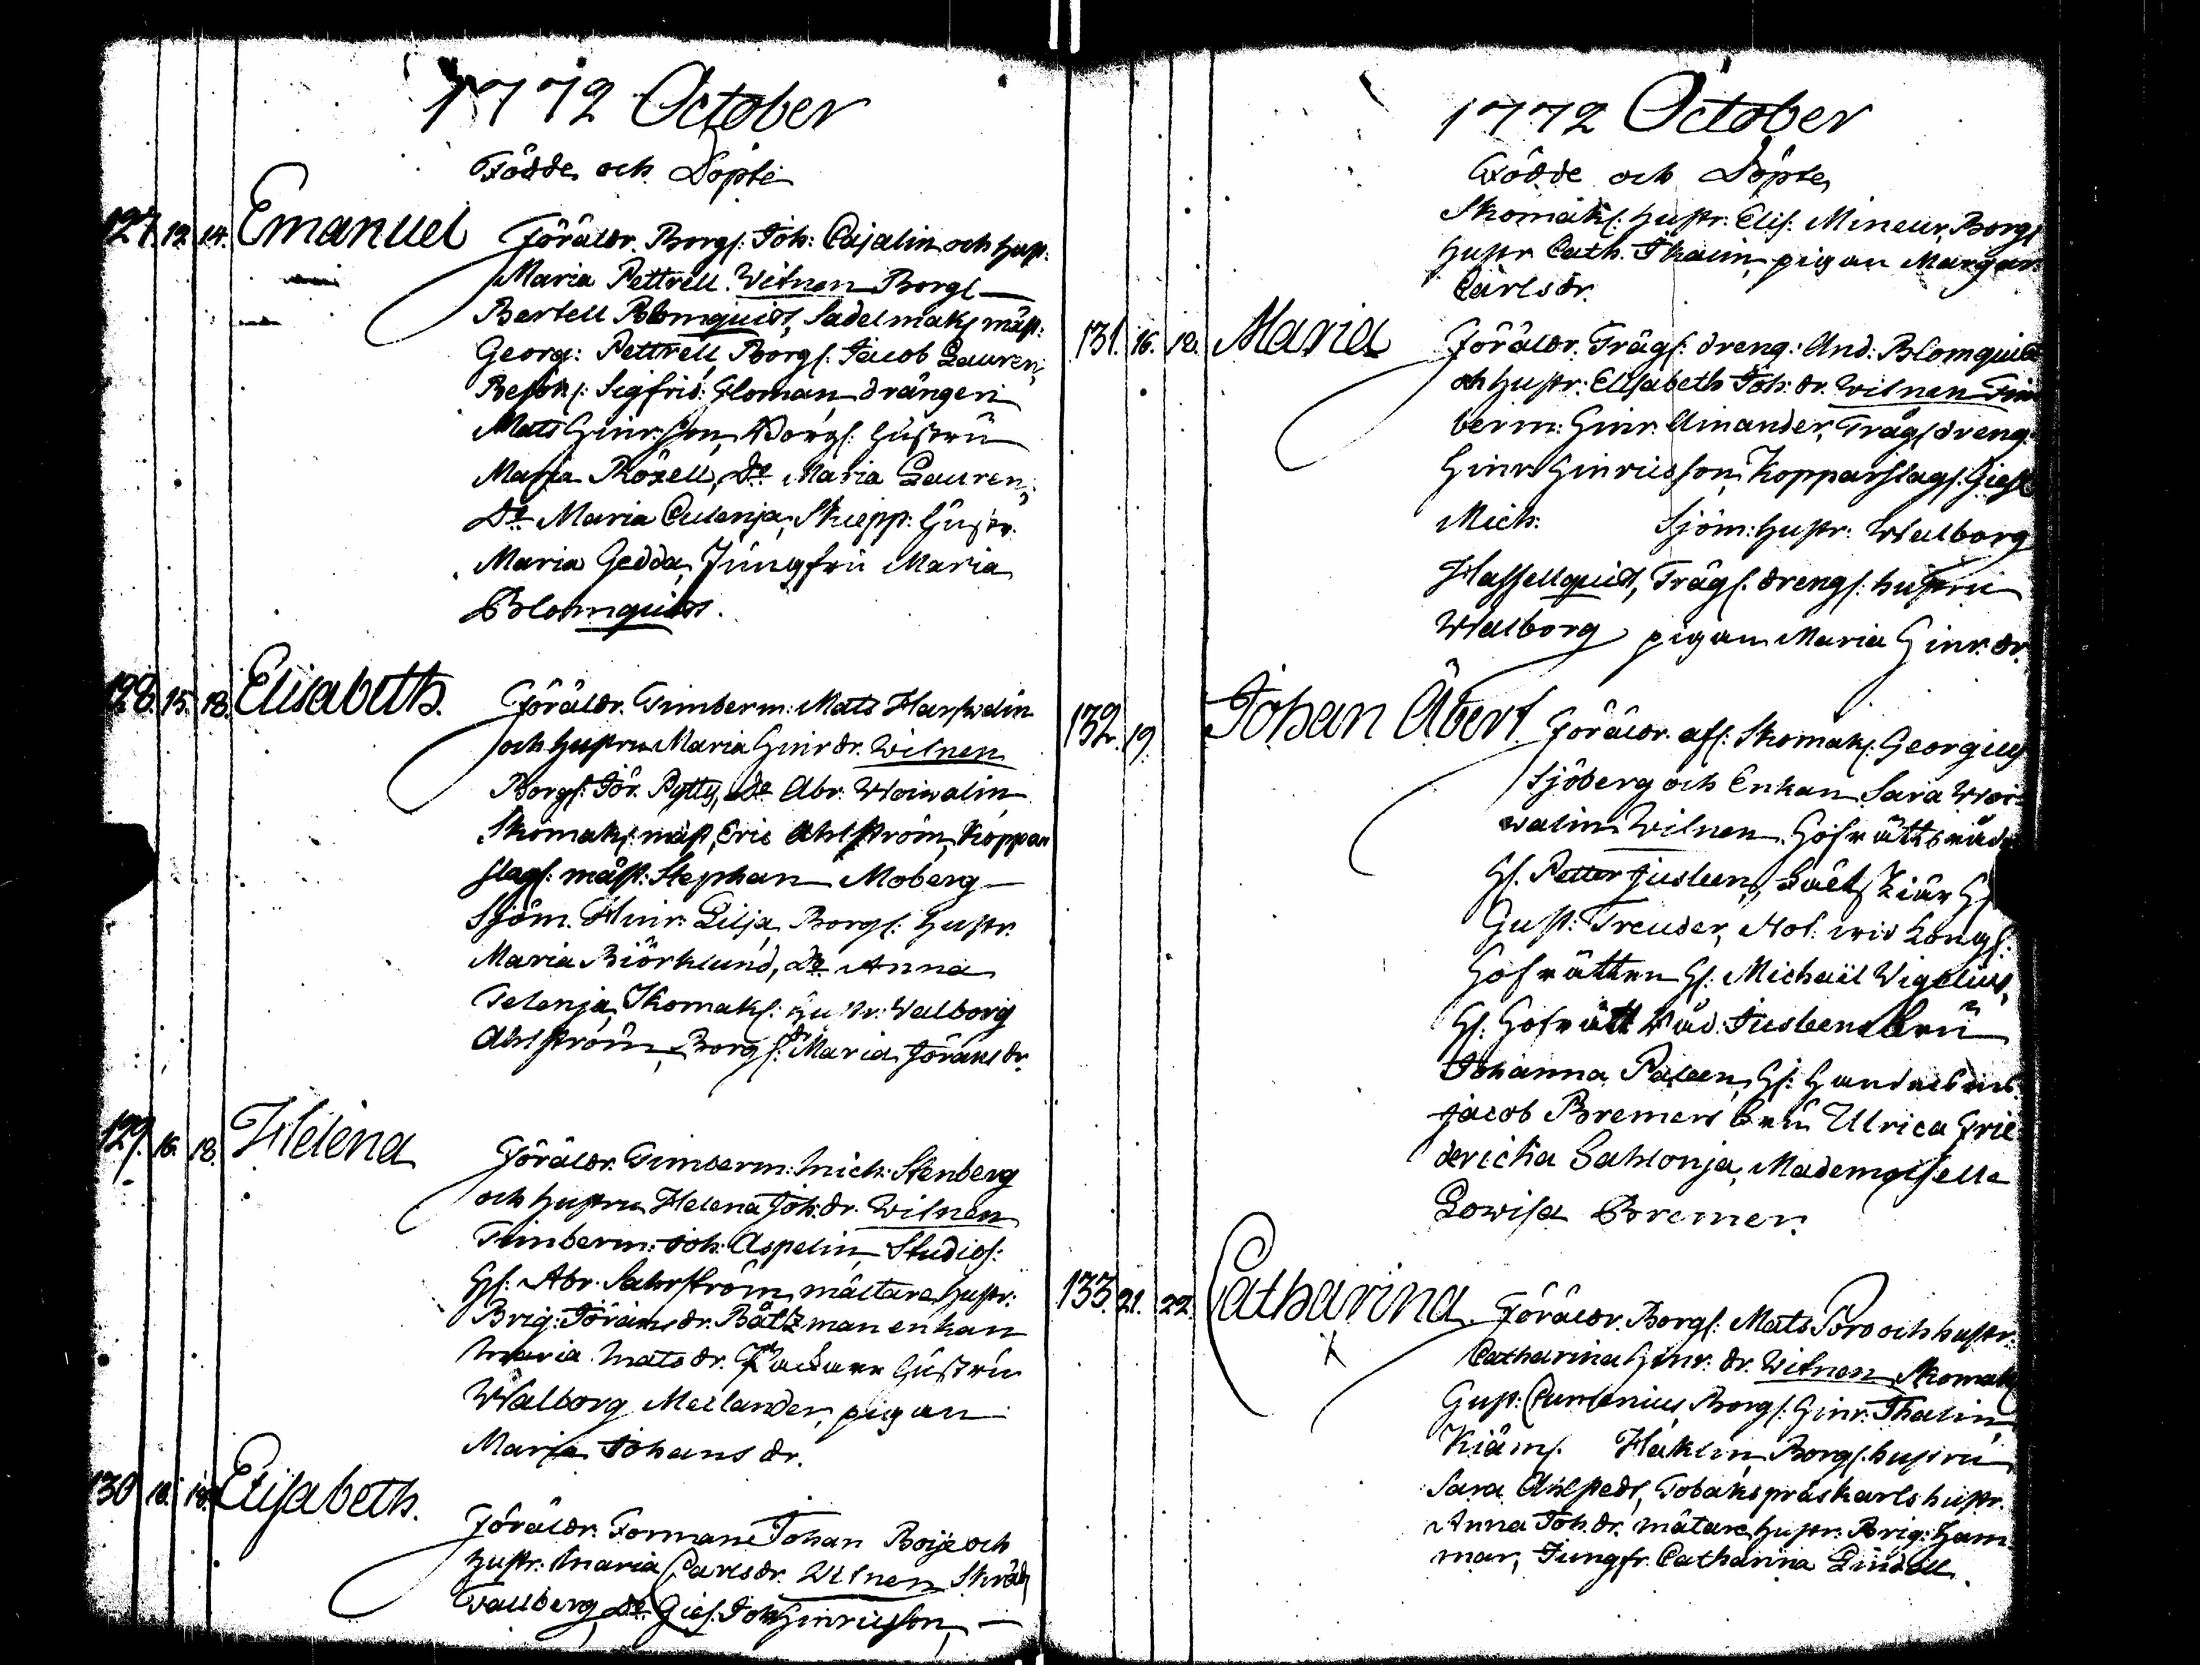 1772 October
Födde och Döpte
127. 12. 14. Emanuel Föräldr. Borgs: Joh: Cajalin och hust.
Maria Pettrell. Witnen Borgs
Bertell Blomquist, Sadelmaks mäst:
Georg: Pettrell, Borgs: Jacob Lauren,
Sigfrid: Floman, drängen
Mats Hinr:sson, Borgs: hustru
Maria Roxell, Do Maria Lauren,
Do Maria Culenja, Skepp: hustr:
Maria Gedda, Jungfru Maria
Blomquist.
128. 15. 18. Elisabeth. Föräldr. Timberm: Mats Harwelin
och hustru Maria Hinr dr. Witnen
Borgs: Jör. Pytty, Do Abr. Woiwalin
Skomaks: mäst, Eric Ahlström, Koppar
slags: mäst: Stephan Moberg
Sjöm. Hinr: Lilja, Borgs: hustr.
Maria Björklund, Do Anna
Telenja, Skomaks: hustr: Walborg
Ahlström, Borgs: dr Maria Jörans dr.
129. 16. 18. Helena
Föräldr. Timberm: Mich: Stenberg
och hustru Helena Joh: dr. Witnen
Timberm: Joh: Aspelin, Studios:
Hr: Abr. Sahrström, mältare hustr:
Brig: Jörans dr. Båtzman enkan
Maria Mats dr. hustru
Walborg Mellander, pigan
Maria Johans dr.
130 18. 18. Elisabeth.
Föräldr. Formane Johan Boije och
hustr: Maria Carls dr. Witnen Skrädd
Wallberg, Do Gies. Joh Hinricsson,
1772 October
Födde och Döpte,
Skomaks: hustr. Elis. Mineur, Borgs
hustr Cath. Thalin, pigan Margar.
Carls dr.
131. 16. 18. Maria Föräldr. Trägs: dreng: And: Blomquist
och hustr: Elisabeth Joh: dr. Witnen Tim
berm: Hinr. Aminander, Trägs dreng:
Hinr Hinricsson, Kopparslags: Giesl
Mich: Sjöm: hustr: Walborg
Hassellquist, Trägs. drengs: hustru
Walborg pigan Maria Hinr. dr.
132. 19. Johan Äbert Föräldr. afs: Skomaks. Georgius
Sjöberg och Enkan Sara Woi-
walin Witnen Hofrättsråd
H: Petter Jusleen,
Gust: Treuder, Not: wid Kongs:
Hofrätten H: Michaël Wigelius,
H: Hofrätt Råd. Jusleens Fru
Johanna Paleen, H: Handelsm.
Jacob Bremers Fru Ulrica Frie
dericha Sahlonja, Mademoiselle
Lowisa Bremer.
133. 21. 22. Catharina Föräldr. Borgs: Mats Poro och hustr:
Catharina Hinr: dr. Witnen Skomaks
Gust: Curtenius, Borgs: Hinr: Thalin,
Häklin, Borgs. hustru,
Sara Ahlstedt, Tobakspråskarls hustr.
Anna Joh. dr. mätare hustr: Brig: Ham
mar, Jungfr: Catharina Lindell.